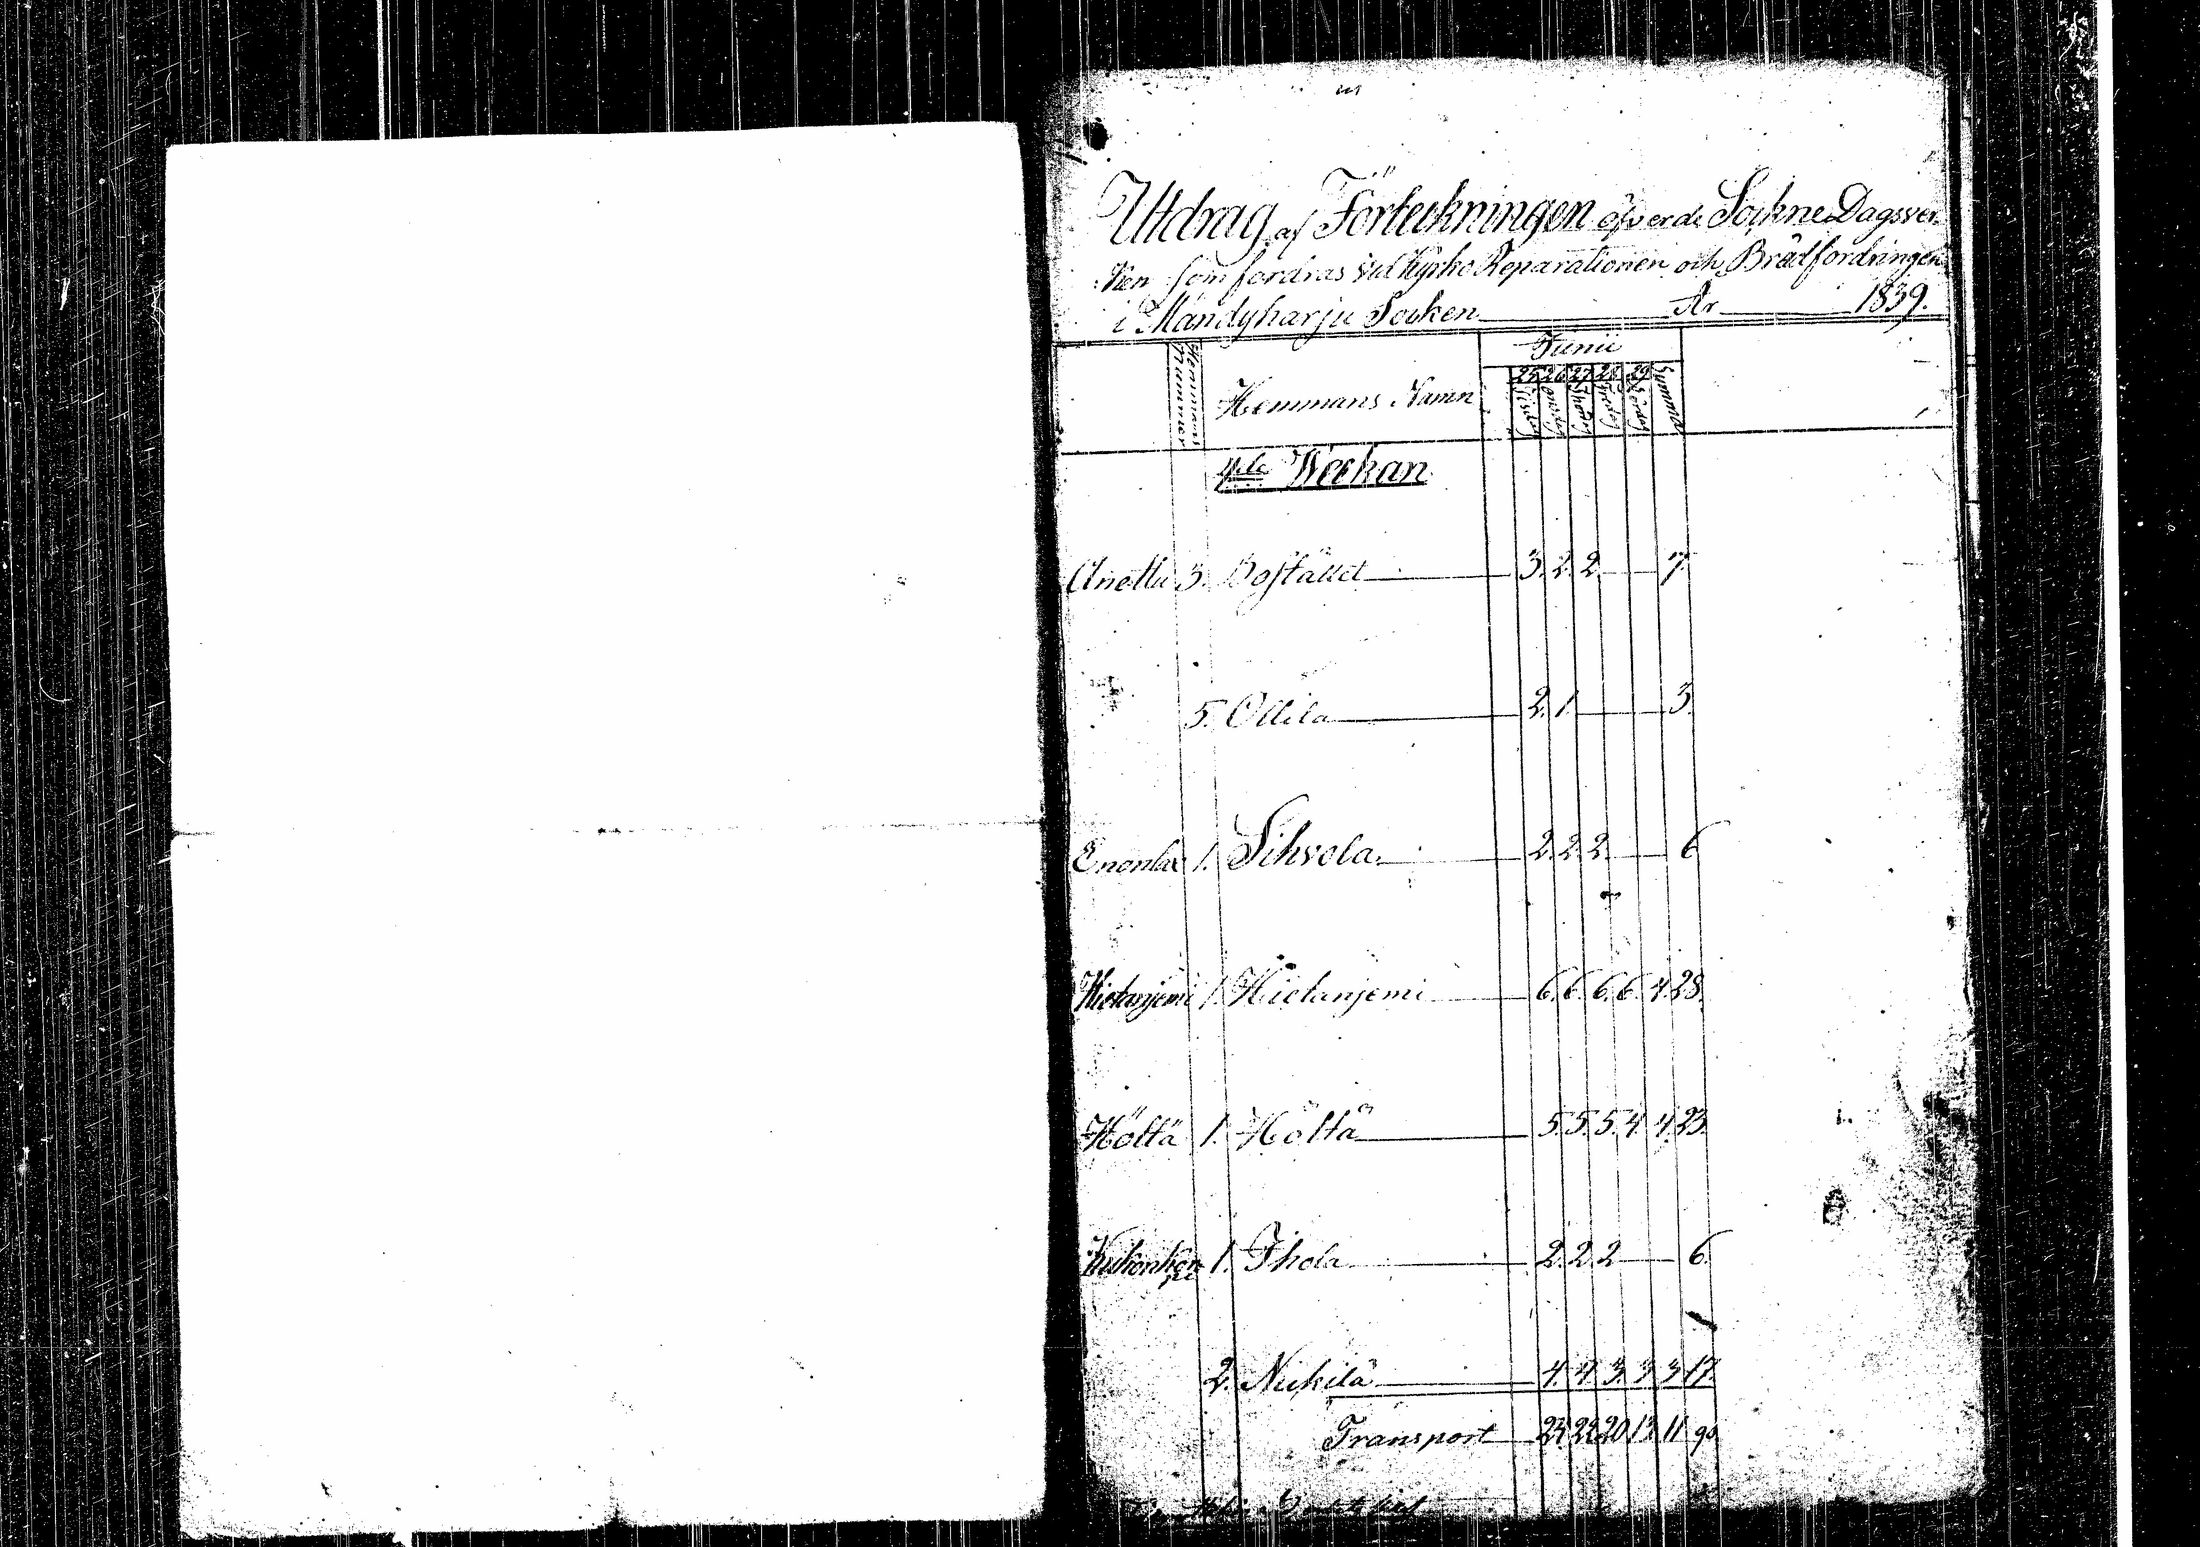 Utdrag af Förteckningen öfver de Sockne Dagsver-
ken som fordras vid Kyrko Reparationen och Brädfordringen
i Mändyharju Socken År 1839.
Hemmans Nummer Hemmans Namn Junii
25 26 27 28 29 Summa
Tisdag Onsdag Thordag Fredag Lördag
4de Weckan
Anetlu 3. Bostället 3. 2. 2. 7.
5. Ollila 2. 1. 3.
Enonlax 1. Sihvola 2. 2. 2. 6
Hietanjemi 1. Hietanjemi 6. 6. 6. 6. 4. 28.
Höltä 1. Höltä 5. 5. 5. 4. 4. 23.
1. Ihola 2. 2. 2 6.
2. Nickilä 4. 4. 3. 3. 3. 17.
Transport 24 22 20 13 11 90